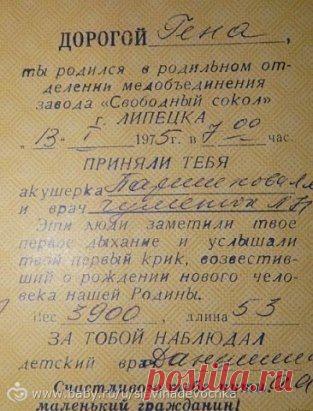 ДОРОГОЙ Гена,
ты родился в родильном от-
делении медобъединения
завода «Свободный сокол»
г. ЛИПЕЦКА
"13" I 1975г. в 7 00 час.
ПРИНЯЛИ ТЕБЯ
акушерка
и врач
Эти люди заметили твое
первое дыхание и услышали
твой первый крик, возвестив-
ший о рождении нового чело-
века нашей Родины.
Вес 3900, длина 53
ЗА ТОБОЙ НАБЛЮДАЛ
детский врач
Счастливого тебе пути,
маленький гражданин!